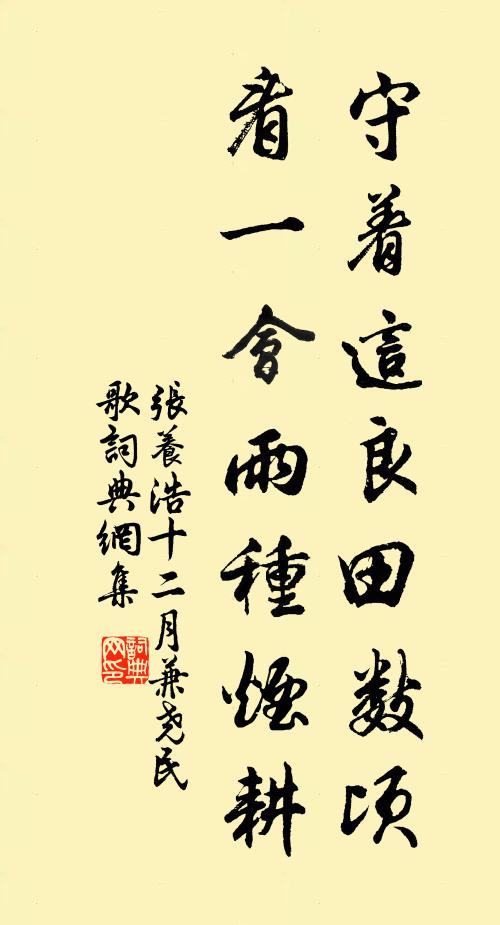 守着這良田數頃
看一會雨種煙耕
張養浩十二月兼尭民
歌詞典網集
詞典
网印